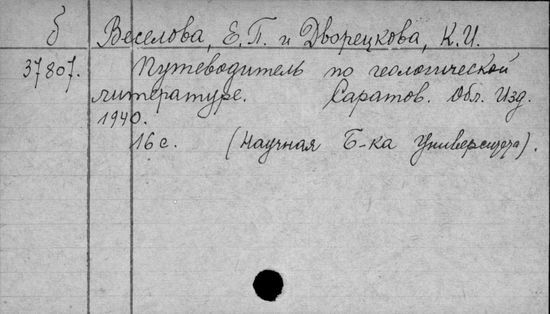 б Веселова, Е.П. и Дворецкова, К.И.
37807. Путеводитель по геологической
литературе. Саратов. Обл. Изд.
1940.
16 с. (Научная Б-ка Университета).